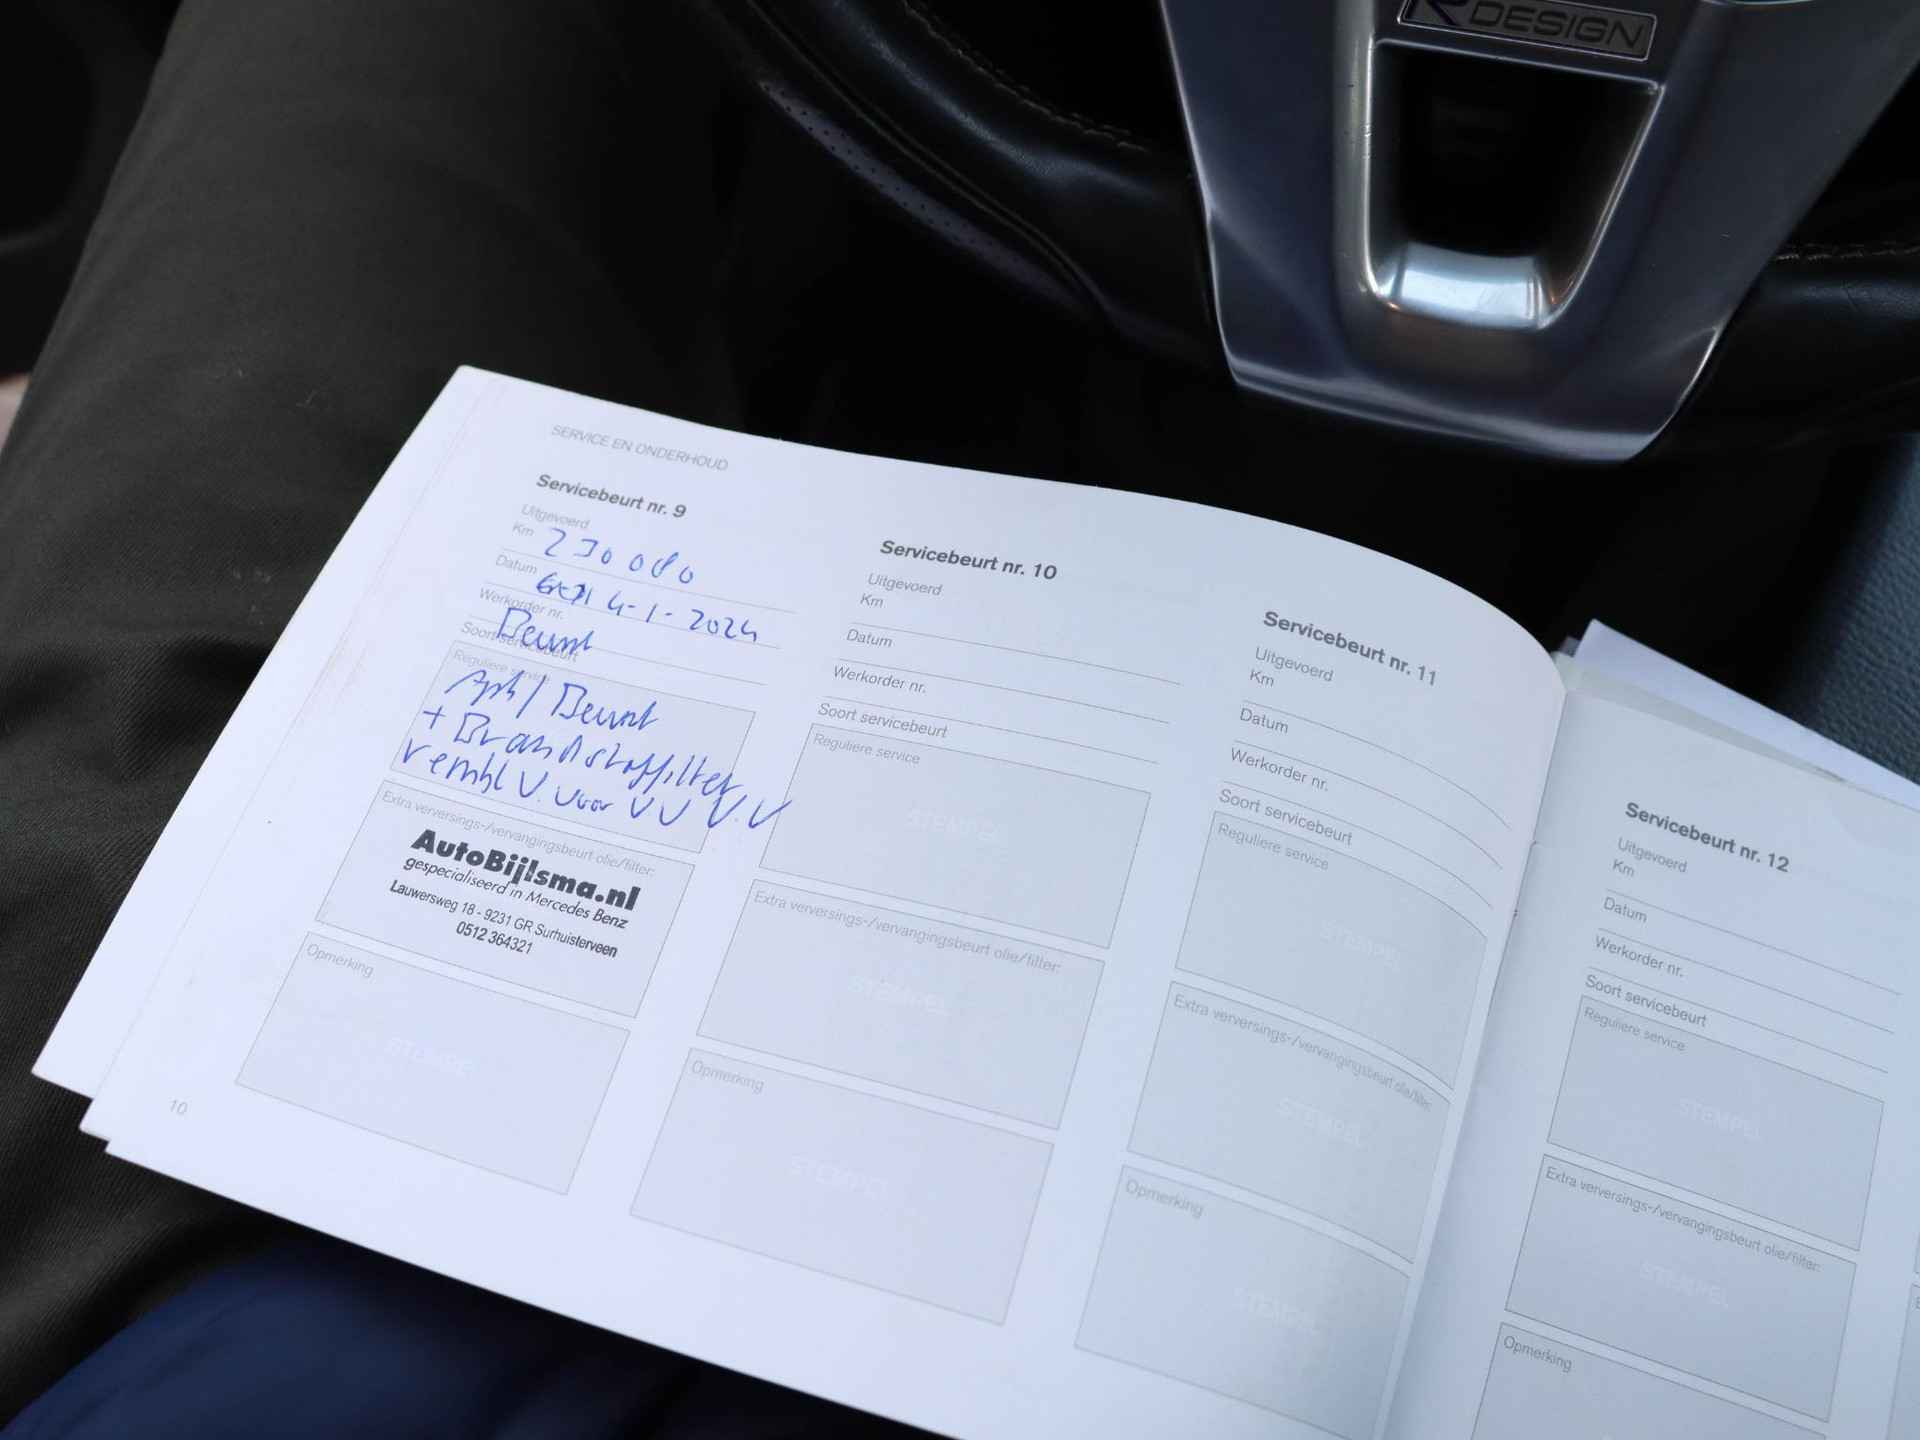 R DESIGN
SERVICE EN ONDERHOUD
Servicebeurt nr. 9
Uitgevoerd
Km 230080
Datum 4-1-2024
Werkorder nr. Beurt
Soort servicebeurt
Reguliere service
Apk / Beurt
+ Brandstoffilter
rembl V. voor VV V.V
Extra verversings-/vervangingsbeurt olie/filter:
AutoBijlsma.nl
gespecialiseerd in Mercedes Benz
Lauwersweg 18 - 9231 GR Surhuisterveen
0512 364321
Opmerking
STEMPEL
10
Servicebeurt nr. 10
Uitgevoerd
Km
Datum
Werkorder nr.
Soort servicebeurt
Reguliere service
STEMPEL
Extra verversings-/vervangingsbeurt olie/filter:
STEMPEL
Opmerking
STEMPEL
Servicebeurt nr. 11
Uitgevoerd
Km
Datum
Werkorder nr.
Soort servicebeurt
Reguliere service
STEMPEL
Extra verversings-/vervangingsbeurt olie/filter:
STEMPEL
Opmerking
STEMPEL
Servicebeurt nr. 12
Uitgevoerd
Km
Datum
Werkorder nr.
Soort servicebeurt
Reguliere service
STEMPEL
Extra verversings-/vervangingsbeurt olie/filter:
STEMPEL
Opmerking